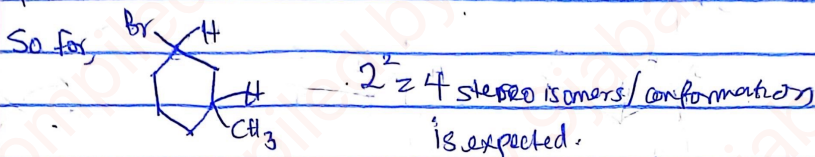 So for,
Br H
H
CH₃
2² = 4 stereo isomers/conformation
is expected.